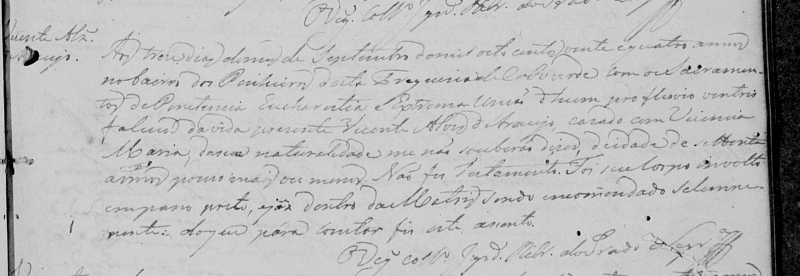 Vicente Alz.
Araujo.
Aos tres dias do mes de Septembro de mil oito centos vinte e quatro annos
no bairro dos Pinheiros desta Freguezia de com os Sacramen-
tos de Penitencia Eucharestia e Extrema Unção d'hum profluvio ventris
faleceu da vida prezente Vicente Alves d'Araujo, cazado com Vicencia
Maria, da sua naturalidade me não souberão dizer, de idade de settenta
annos pouco mais ou menos. Não fes testamento. Foi seu corpo involto
em pano preto, e jáz dentro da Matriz sendo encomendado solemne-
mente: do que para constar fis este asento.
do Prado